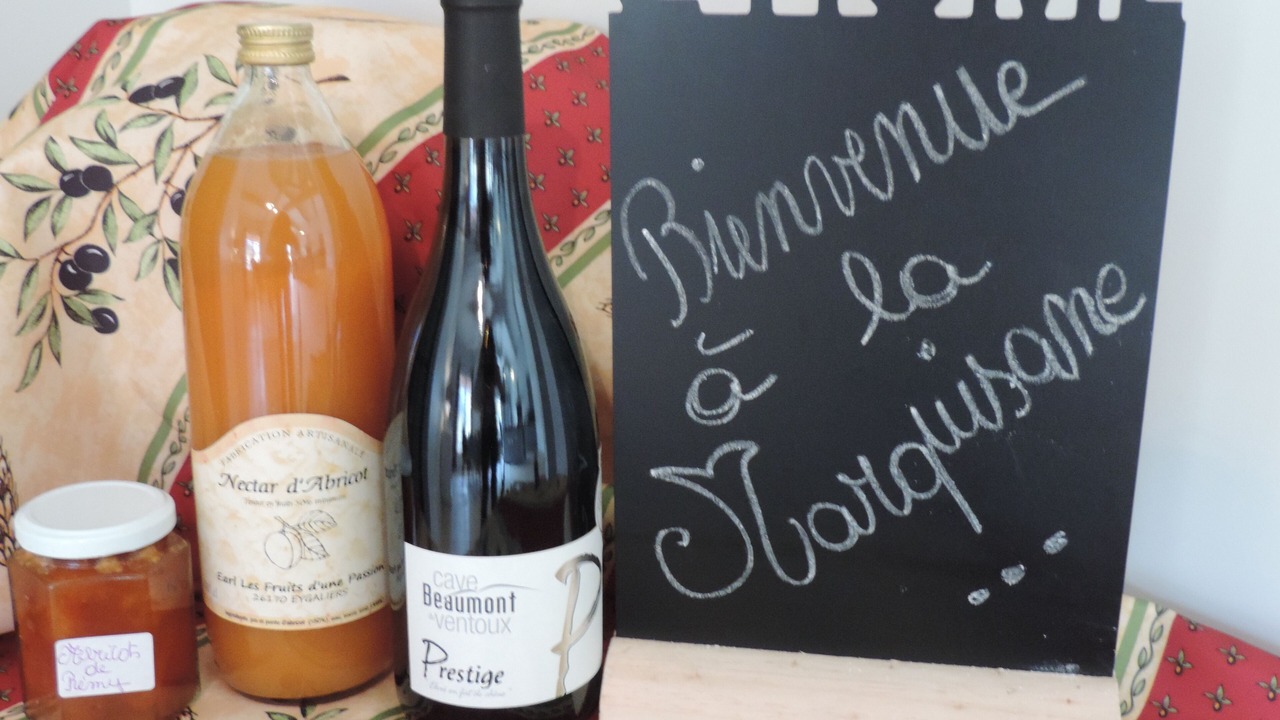 Bienvenue
à la
Marquisane
...
FABRICATION ARTISANALE
Nectar d'Abricot
Earl Les Fruits d'une Passion
26170 EYGALIERS
cave
Beaumont
du ventoux
Prestige
P
Abricots
de
Rémy